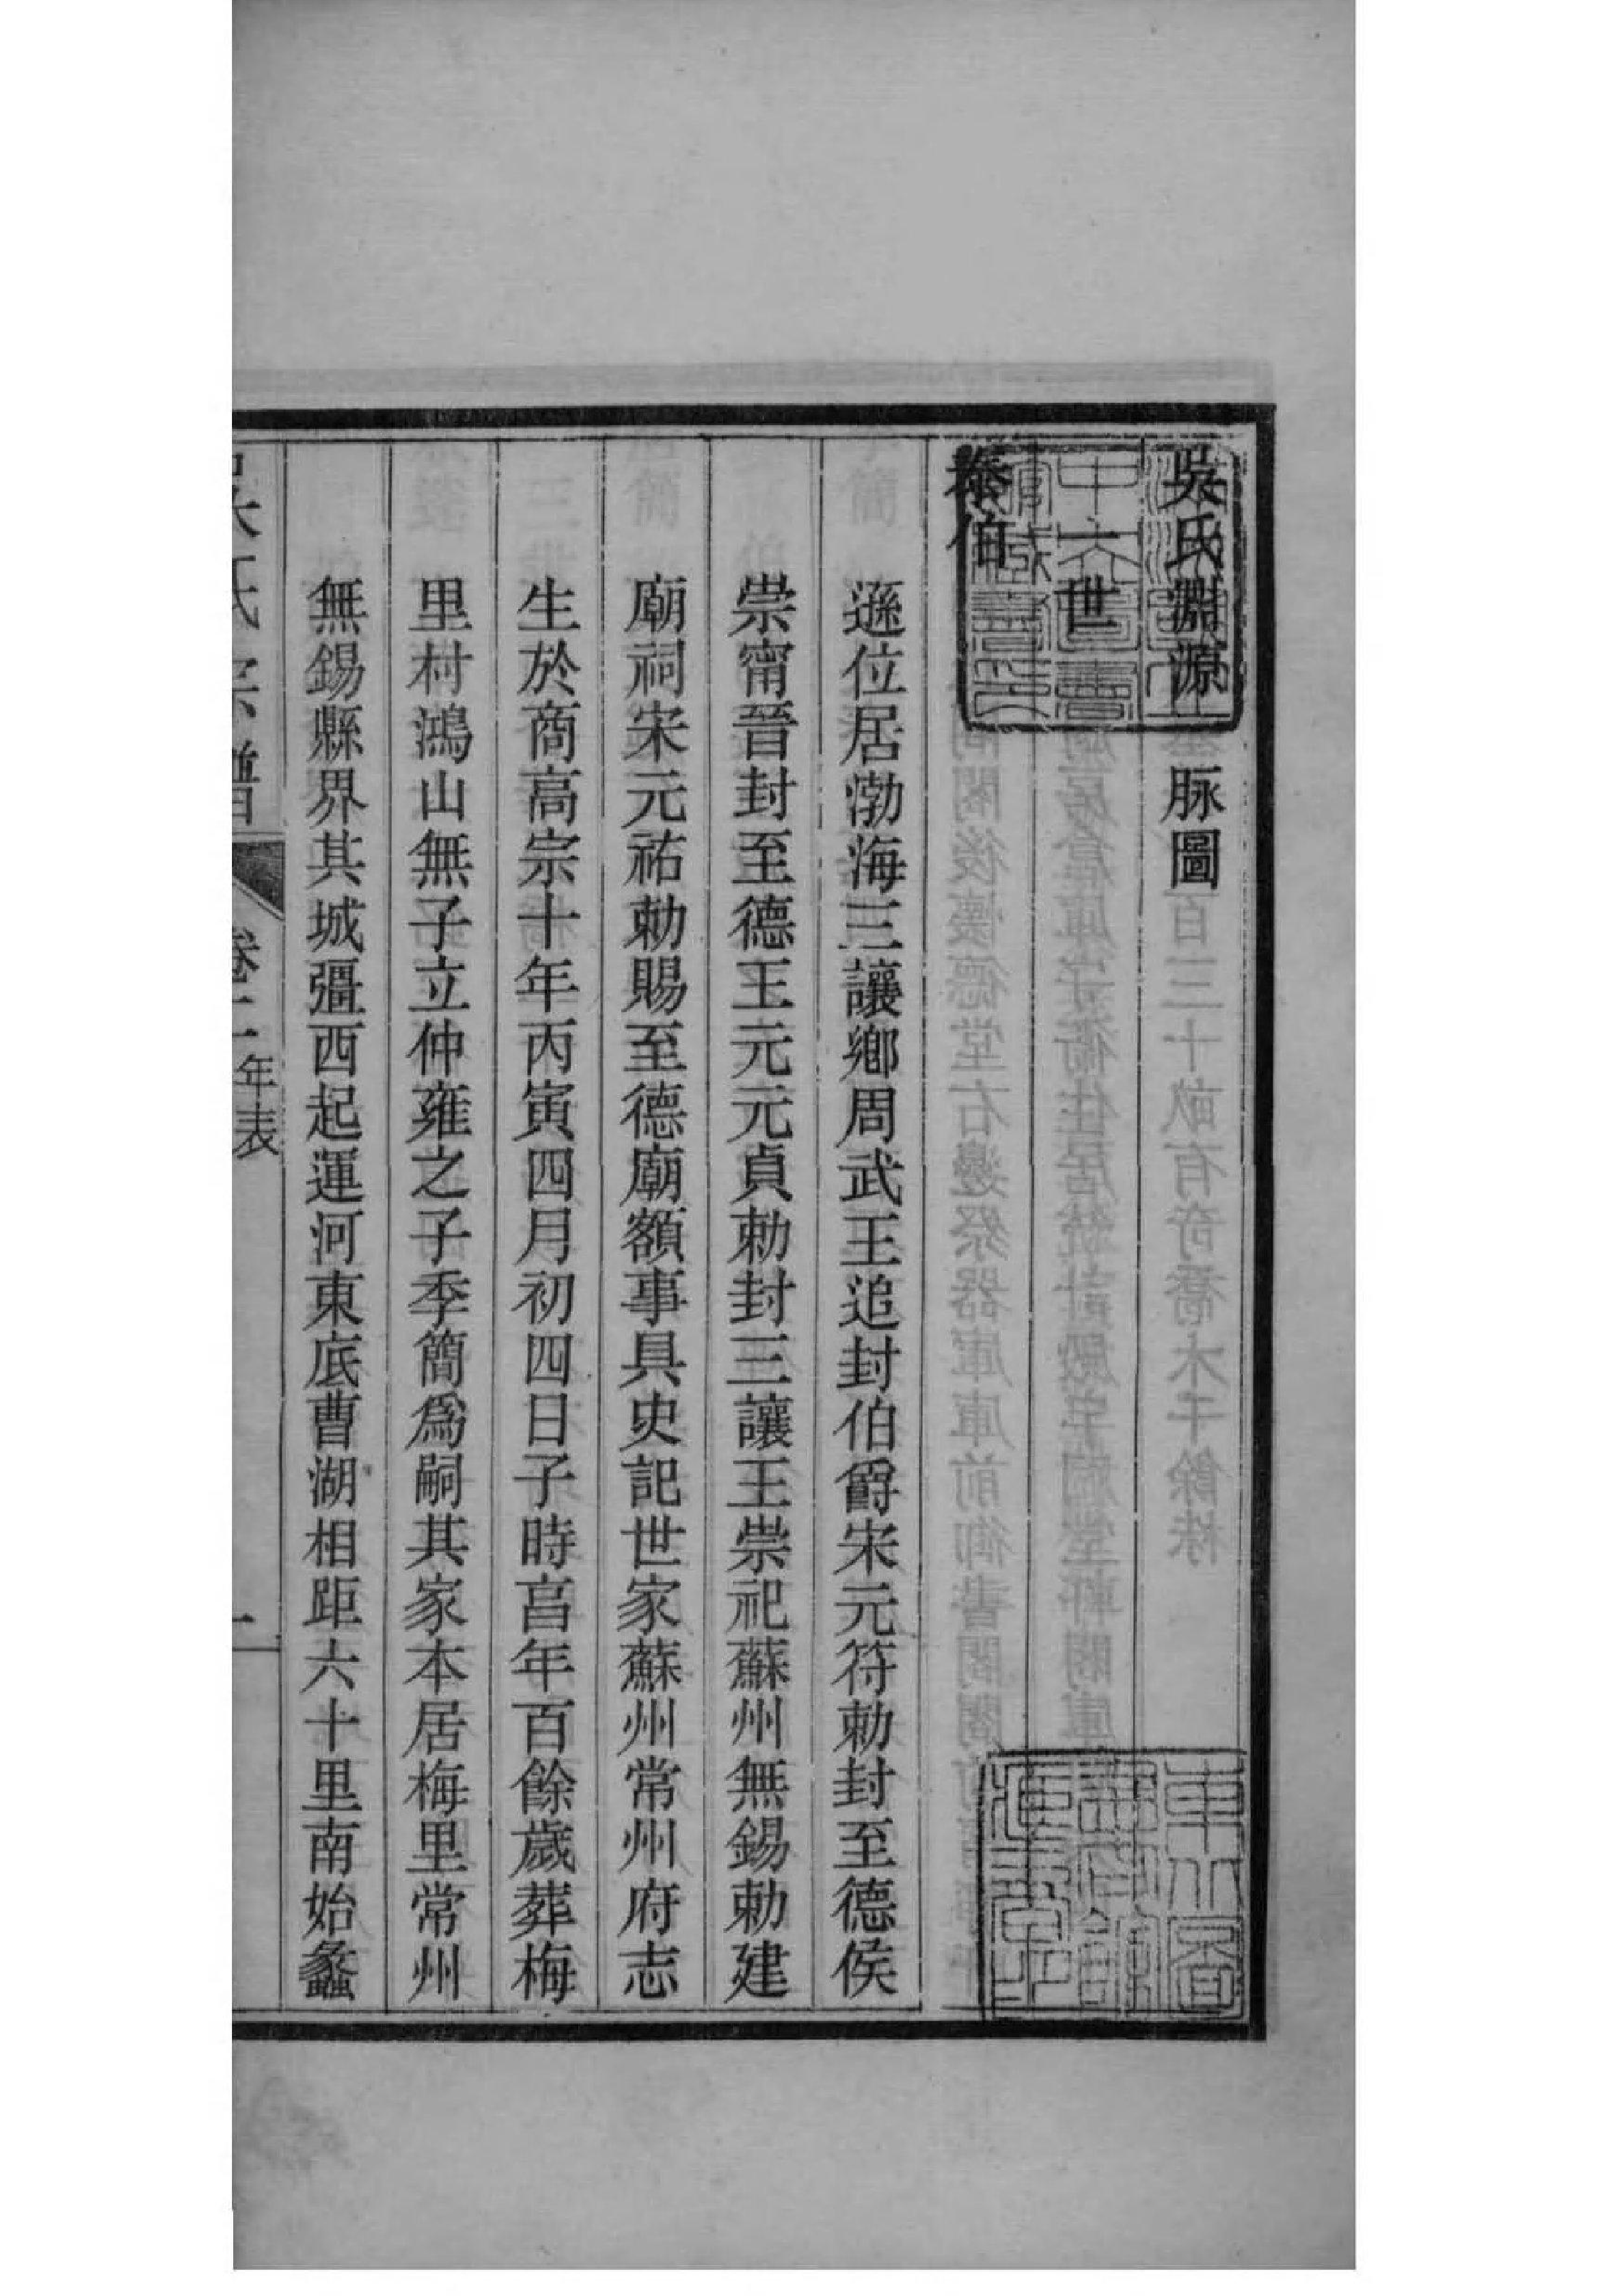 吳氏淵源一脉圖
一世
泰伯
遜位居渤海三讓鄉周武王追封伯爵宋元符勅封至德侯
崇甯晉封至德王元元貞勅封三讓王崇祀蘇州無錫勅建
廟祠宋元祐勅賜至德廟額事具史記世家蘇州常州府志
生於商高宗十年丙寅四月初四日子時亯年百餘歲葬梅
里村鴻山無子立仲雍之子季簡爲嗣其家本居梅里常州
無錫縣界其城彊西起運河東底曹湖相距六十里南始蠡
吳氏宗譜
卷二
年表
一